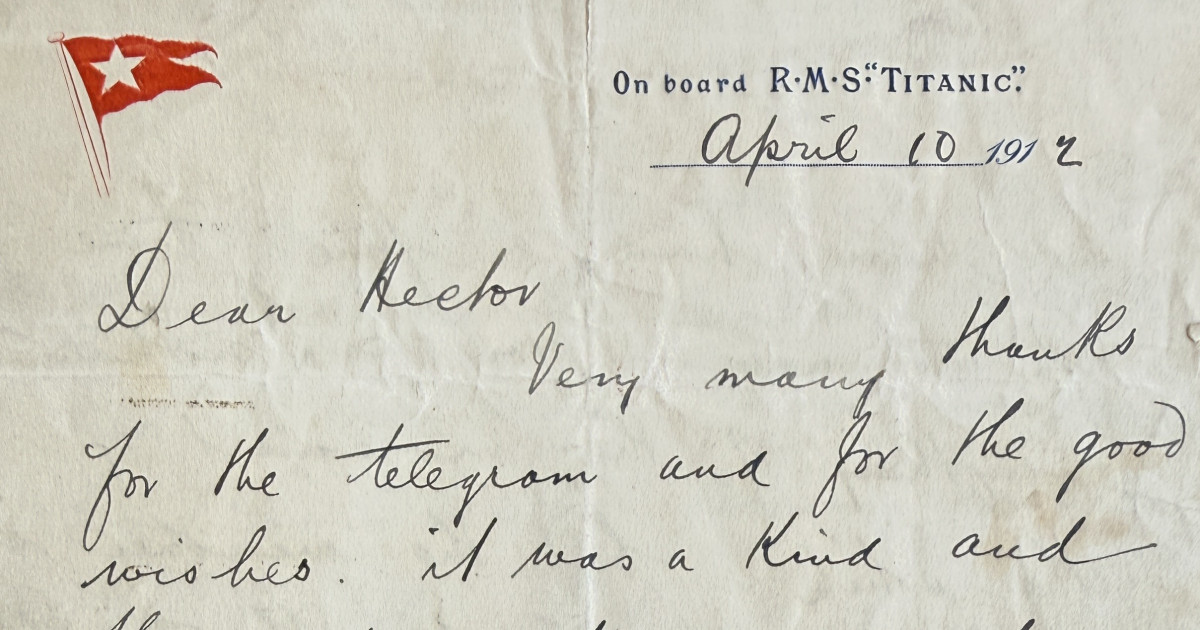 On board R·M·S·“TITANIC”.
April 10 1912
Dear Hector
Very many thanks
for the telegram and for the good
wishes. it was a kind and